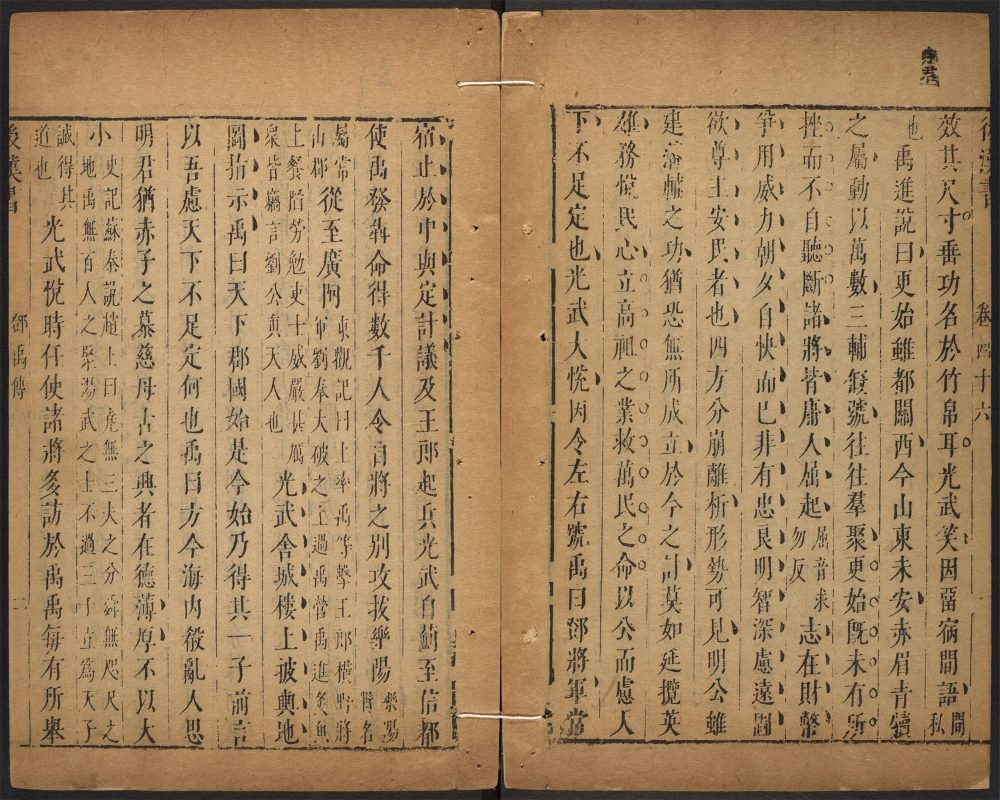 後漢書 卷四十六
效其尺寸垂功名於竹帛耳光武笑因留宿閒語閒私
也禹進說曰更始雖都關西今山東未安赤眉青犢
之屬動以萬數三輔假號往往羣聚更始旣未有所
挫而不自聽斷諸將皆庸人屈起屈音求勿反志在財幣
爭用威力朝夕自快而已非有忠良明智深慮遠圖
欲尊主安民者也四方分崩離析形勢可見明公雖
建藩輔之功猶恐無所成立於今之計莫如延攬英
雄務悅民心立高祖之業救萬民之命以公而慮天
下不足定也光武大悅因令左右號禹曰鄧將軍常
宿止於中與定計議及王郎起兵光武自薊至信都
使禹發犇命得數千人令自將之别攻拔樂陽樂陽縣名
屬常山郡從至廣阿東觀記曰上率禹等擊王郎橫野將軍劉奉大破之上過禹營禹進炙魚
上餐啗勞勉吏士威嚴甚厲衆皆竊言劉公真天人也光武舍城樓上披輿地
圖指示禹曰天下郡國如是今始乃得其一子前言
以吾慮天下不足定何也禹曰方今海内殽亂人思
明君猶赤子之慕慈母古之興者在德薄厚不以大
小史記蘇秦說趙王曰堯無三夫之分舜無咫尺之地禹無百人之聚湯武之士不過三千立爲天子
誠得其道也光武悅時任使諸將多訪於禹禹每有所舉
後漢書 鄧禹傳 二